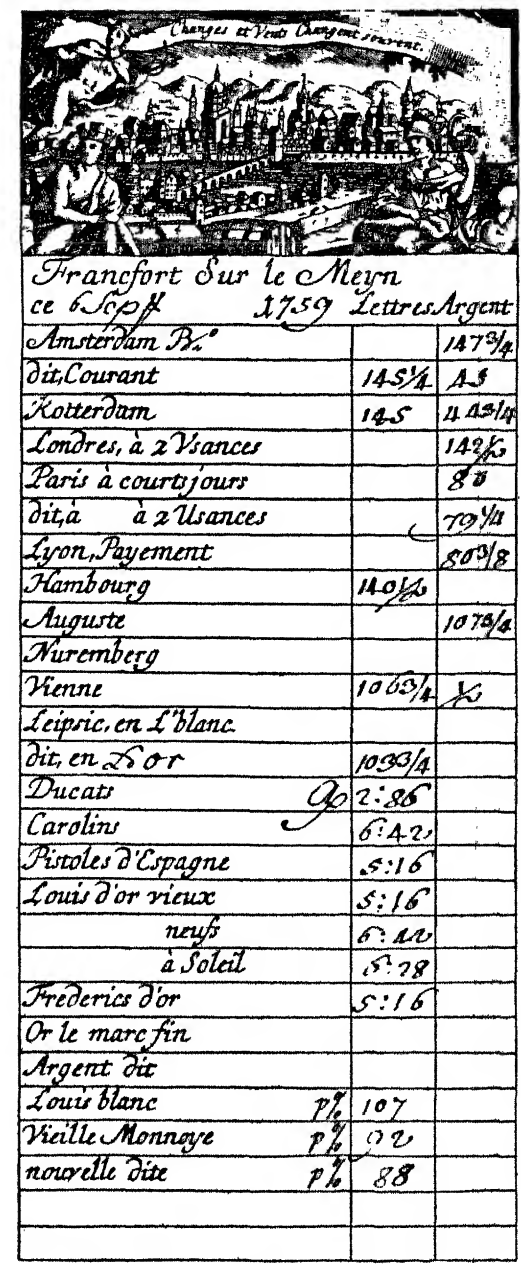 Changes et Vents Changent souvent.
Francfort Sur le Meyn
ce 6 1759 Lettres Argent
Amsterdam B.co 147 3/4
dit, Courant 145 1/4 45
Rotterdam 145 4 43/4
Londres, à 2 Vsances 142 1/2
Paris à courts jours 80
dit, à à 2 Usances 79 1/4
Lyon, Payement 80 3/8
Hambourg 140 1/2
Auguste 107 3/4
Nuremberg
Vienne 106 3/4 1/2
Leipsic, en L. blanc
dit, en or 103 3/4
Ducats 2:86
Carolins 6:42
Pistoles d'Espagne 5:16
Louis d'or vieux 5:16
neufs 6:42
à Soleil 28
Frederics d'or 5:16
Or le marc fin
Argent dit
Louis blanc p% 107
Vieille Monnoye p% 92
nouvelle dite p% 88